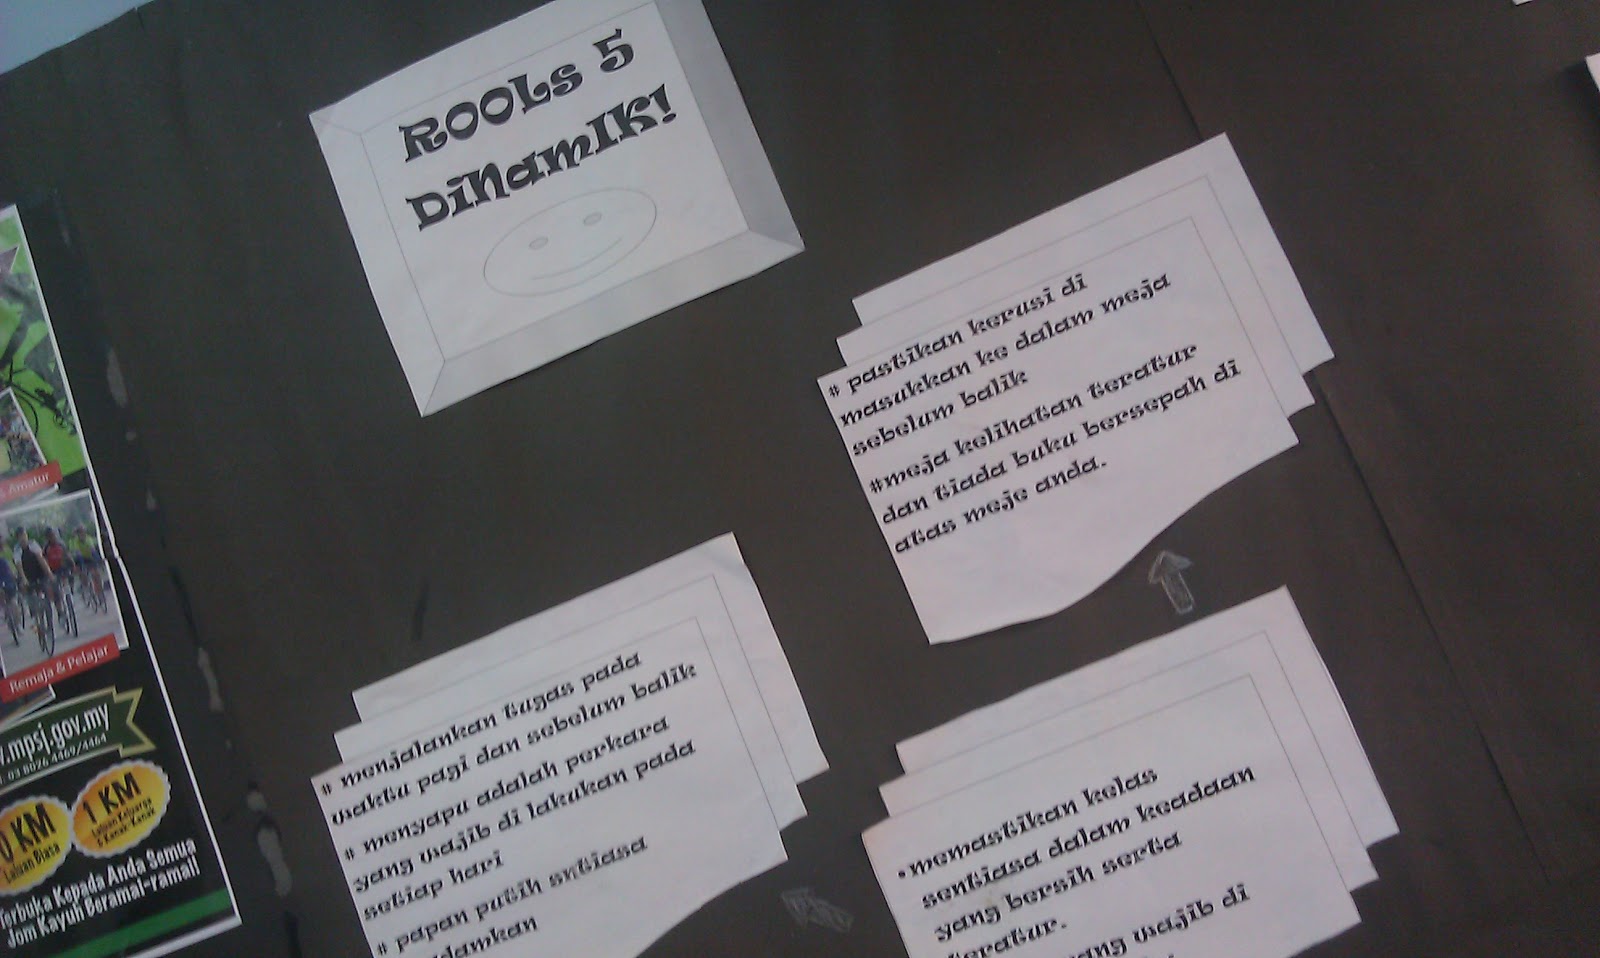 ROOLs 5
DiNamIK!
# pastikan kerusi di
masukkan ke dalam meja
sebelum balik
#meja kelihatan teratur
dan tiada buku bersepah di
atas meje anda.
# menjalankan tugas pada
waktu pagi dan sebelum balik
# menyapu adalah perkara
yang wajib di lakukan pada
setiap hari
# papan putih sntiasa
damkan
•memastikan kelas
sentiasa dalam keadaan
yang bersih serta
teratur.
yang wajib di
Amatur
Remaja & Pelajar
.mpsj.gov.my
03 8026 4469/4464
0 KM
Laluan Biasa
1 KM
Laluan Keluarga
& Kanak-Kanak
Terbuka Kepada Anda Semua
Jom Kayuh Beramai-ramai!